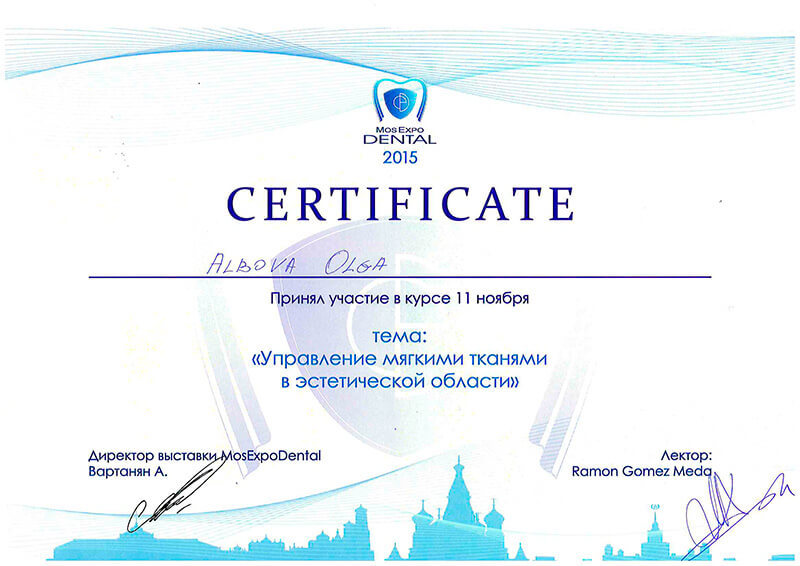 MosExpo
DENTAL
2015
CERTIFICATE
Albova Olga
Принял участие в курсе 11 ноября
тема:
«Управление мягкими тканями
в эстетической области»
Директор выставки MosExpoDental
Вартанян А.
Лектор:
Ramon Gomez Meda